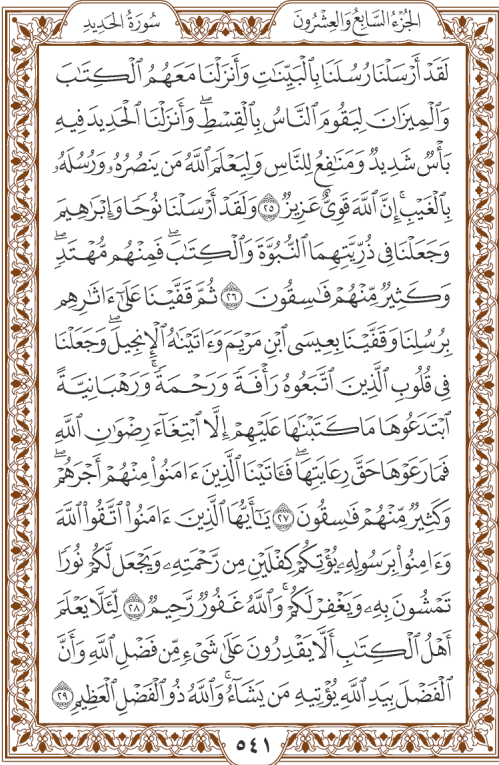 الجُزْءُ السَّابِعُ وَالعِشْرُونَ
سُورَةُ الحَدِيدِ
لَقَدْ أَرْسَلْنَا رُسُلَنَا بِالْبَيِّنَاتِ وَأَنزَلْنَا مَعَهُمُ الْكِتَابَ
وَالْمِيزَانَ لِيَقُومَ النَّاسُ بِالْقِسْطِ ۖ وَأَنزَلْنَا الْحَدِيدَ فِيهِ
بَأْسٌ شَدِيدٌ وَمَنَافِعُ لِلنَّاسِ وَلِيَعْلَمَ اللَّهُ مَن يَنصُرُهُ وَرُسُلَهُ
بِالْغَيْبِ ۚ إِنَّ اللَّهَ قَوِيٌّ عَزِيزٌ ٢٥ وَلَقَدْ أَرْسَلْنَا نُوحًا وَإِبْرَاهِيمَ
وَجَعَلْنَا فِي ذُرِّيَّتِهِمَا النُّبُوَّةَ وَالْكِتَابَ ۖ فَمِنْهُم مُّهْتَدٍ ۖ
وَكَثِيرٌ مِّنْهُمْ فَاسِقُونَ ٢٦ ثُمَّ قَفَّيْنَا عَلَىٰ ءَاثَارِهِم
بِرُسُلِنَا وَقَفَّيْنَا بِعِيسَى ابْنِ مَرْيَمَ وَءَاتَيْنَاهُ الْإِنجِيلَ ۖ وَجَعَلْنَا
فِي قُلُوبِ الَّذِينَ اتَّبَعُوهُ رَأْفَةً وَرَحْمَةً ۚ وَرَهْبَانِيَّةً
ابْتَدَعُوهَا مَا كَتَبْنَاهَا عَلَيْهِمْ إِلَّا ابْتِغَاءَ رِضْوَانِ اللَّهِ
فَمَا رَعَوْهَا حَقَّ رِعَايَتِهَا ۖ فَـَٔاتَيْنَا الَّذِينَ ءَامَنُوا مِنْهُمْ أَجْرَهُمْ ۖ
وَكَثِيرٌ مِّنْهُمْ فَاسِقُونَ ٢٧ يَـٰٓأَيُّهَا الَّذِينَ ءَامَنُوا اتَّقُوا اللَّهَ
وَءَامِنُوا بِرَسُولِهِ يُؤْتِكُمْ كِفْلَيْنِ مِن رَّحْمَتِهِ وَيَجْعَل لَّكُمْ نُورًا
تَمْشُونَ بِهِ وَيَغْفِرْ لَكُمْ ۚ وَاللَّهُ غَفُورٌ رَّحِيمٌ ٢٨ لِّئَلَّا يَعْلَمَ
أَهْلُ الْكِتَابِ أَلَّا يَقْدِرُونَ عَلَىٰ شَيْءٍ مِّن فَضْلِ اللَّهِ وَأَنَّ
الْفَضْلَ بِيَدِ اللَّهِ يُؤْتِيهِ مَن يَشَاءُ ۚ وَاللَّهُ ذُو الْفَضْلِ الْعَظِيمِ ٢٩
٥٤١